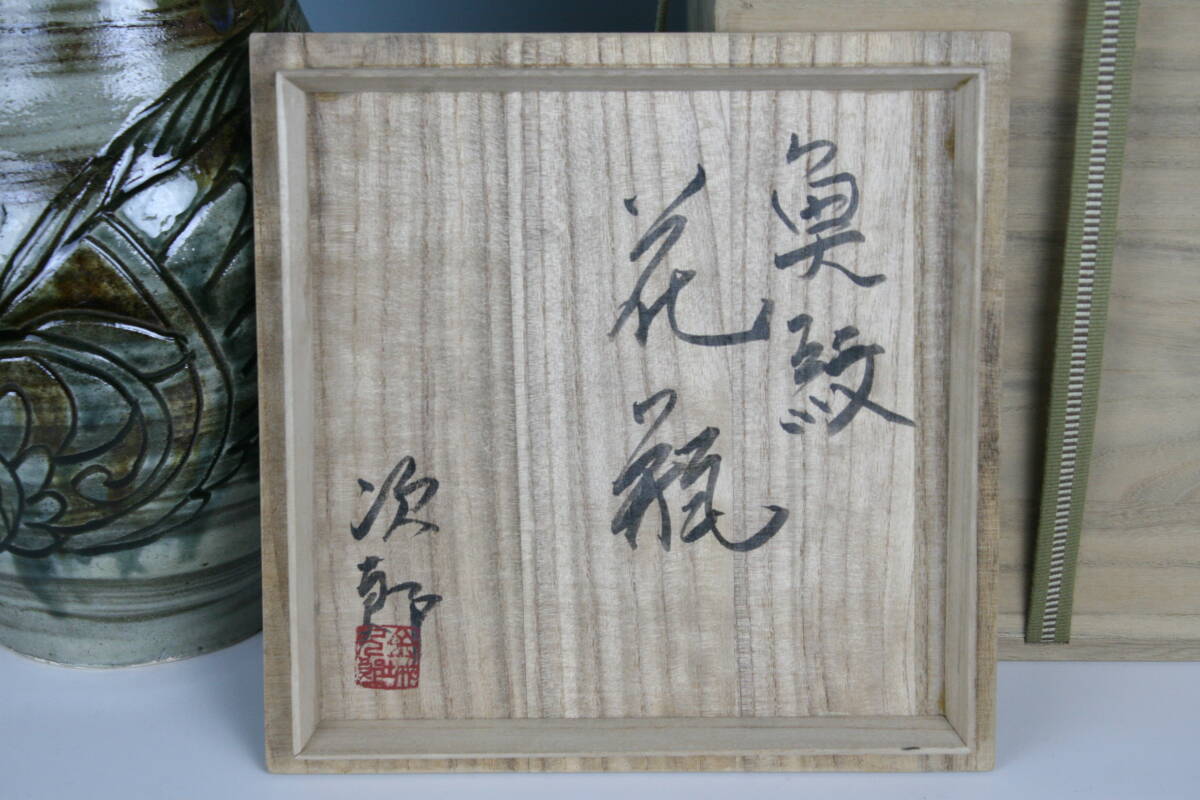 魚紋
花瓶
次郎